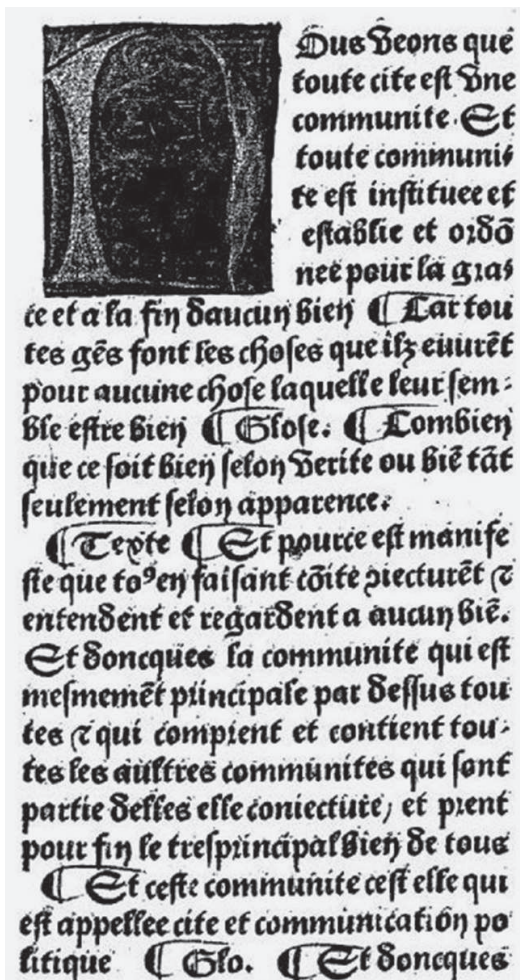 NOus veons que
toute cite est vne
communite. Et
toute communi⸗
te est instituee et
establie et ordõ
nee pour la gra⸗
ce et a la fin daucun bien ¶ Car tou
tes gẽs font les choses que ilz euurẽt
pour aucune chose laquelle leur sem⸗
ble estre bien ¶ Glose. ¶ Combien
que ce soit bien selon verite ou biẽ tãt
seulement selon apparence.
¶ Texte ¶ Et pource est manife
ste que toꝰ en faisant cõite ↄiecturẽt ⁊
entendent et regardent a aucun biẽ.
Et doncques la communite qui est
mesmemẽt principale par dessus tou
tes ⁊ qui comprent et contient tou⸗
tes les aultres communites qui sont
partie delles elle coniecture / et prent
pour fin le tresprincipal bien de tous
¶ Et ceste communite cest elle qui
est appellee cite et communication po
litique ¶ Glo. ¶ Et doncques